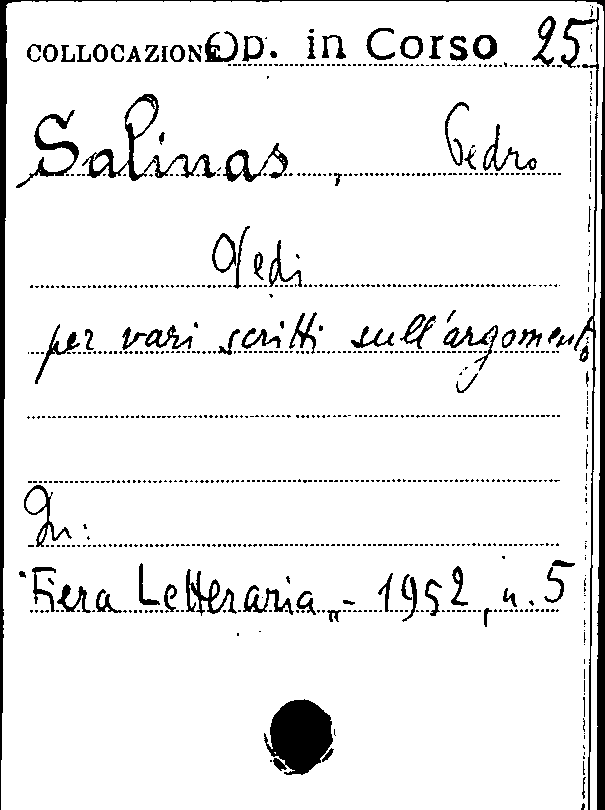 COLLOCAZIONE Op. in Corso 25
Salinas, Pedro
Vedi
per vari scritti sull'argomento
In:
"Fiera Letteraria„ - 1952, n. 5